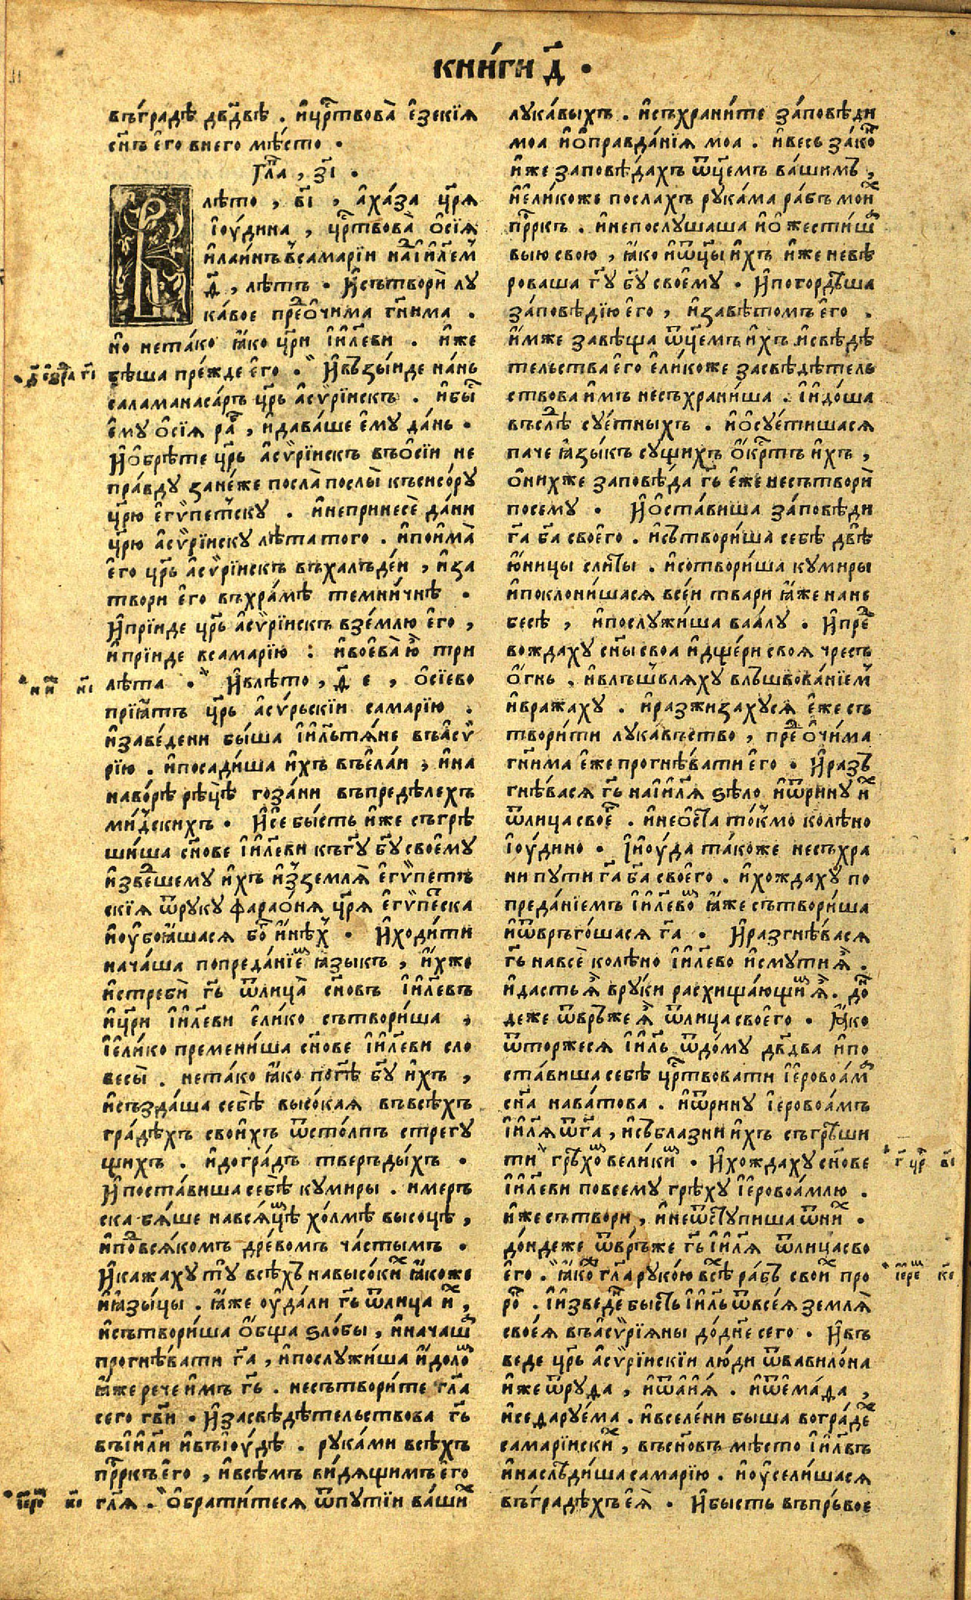 кни́ги д҃ .
въгра́дѣ дв҃двѣ . и҆цр҃твова̀ є҆зекі́ѧ
сн҃ъ є҆го̀ внего̀ мѣ́сто .
гла̀ , з҃і .
лѣ́то , в҃і , а҆ха́за цр҃ѧ
і҆оу́дина , цр҃твова̀ о҆сі́ѧ
и҆ла́инъ всамарі́и наі҆и҃лем
д҃ , лѣтъ . И҆сътворѝ лу
ка́вое пред̾ о҆чи́ма гн҃има .
но нета́ко ꙗ҆́ко цр҃и і҆и҃леви . и҆́же
бѣ́ша пре́жде є҆го̀ . И҆взы́иде на́нь
саламанаса́ръ цр҃ь а҆сѷрі́искъ . и҆бы́
є҆му̀ о҆сі́ѧ ра́б , и҆дава́ше є҆му̀ да́нь .
И҆ѡ҆брѣ́те цр҃ь а҆сѷрі́искъ въо҆сі́и не
пра́вду зане́же посла̀ послы̀ късиго́ру
цр҃ю є҆гѵ́петску . и҆непринесѐ да́ни
цр҃ю а҆сѷрі́иску лѣ́та того . и҆пои́ма̀
є҆го̀ цр҃ь а҆сѷрі́искъ въхалъде́и , и҆за
творѝ є҆го̀ въхра́мѣ темни́чнѣ .
И҆прі́иде цр҃ь а҆сѷрі́искъ взе́млю є҆го̀ ,
и҆прі́иде всамарі́ю : и҆воева̀ ю҆̀ три
лѣ́та . И҆влѣ́то , д҃ е , о҆сі́ево
прїѧ́тъ цр҃ь а҆сѵ́рьскїи самарі́ю .
и҆заве́дени бы́ша і҆и҃льтѧ́не въа҆сѵ́
рїю . и҆посади́ша и҆́хъ въела́и , и҆на
наво́рѣ рѣцѣ̀ гоза́ни въпредѣ́лехъ
ми́дскихъ . И҆сѐ бы́сть и҆́же съгрѣ
ши́ша сн҃ове і҆и҃леви къгу҃ бу҃ своему̀
и҆зве́дшему и҆́хъ и҆зземлѧ̀ є҆гѵ́петъ
скїѧ ѿруку̀ фарао́нѧ цр҃ѧ є҆гѵ́песка
и҆оу҆боꙗ́шасѧ бо́г и҆нѣ́х . И҆ходи́ти
нача́ша попреда́нїем ꙗ҆зы́къ , и҆́хже
и҆стребѝ гь҃ ѿлица̀ сн҃овъ і҆и҃левъ
и҆цр҃и і҆и҃леви є҆ли́ко сътвори́ша ,
і҆є҆ли́ко премени́ша сн҃ове і҆и҃леви сло
весы̀ . нета́ко ꙗ҆́ко поптѣ бу҃ и҆́хъ ,
и҆създа́ша себѣ̀ высо́каѧ въвсѣ́хъ
гра́дѣхъ свои́хъ ѿсто́лпъ стрегу
щихъ . и҆догра́дъ тверъды́хъ .
И҆поста́виша себѣ̀ куми́ры . и҆мерь
ска бѧ́ше навсѧ́цѣ хо́лмѣ высо́цѣ ,
и҆под̾всѧ́комъ дре́вомъ ча́стымъ .
И҆кажаху̀ ту̀ всѣ́хъ навысо́ких ꙗ҆́коже
и҆ꙗ҆зы́цы . ꙗ҆́же оу҆далѝ гь҃ ѿлица̀ и҆х ,
и҆сътвори́ша о҆́бща ѕло́бы , и҆нача́ш
прогнѣ́вати га҃ , и҆послужи́ша и҆́доло́м
ꙗ҆́же речѐ и҆́мъ гь҃ . несътвори́те гл҃а
сего̀ гв҃и . И҆засвѣдѣ́тельствова гь҃
въі҆и҃ли и҆въі҆оу́дѣ . рука́ми всѣ́хъ
прр҃къ є҆го̀ , и҆всѣ́мъ ви́дѧщимъ є҆го̀
гл҃ѧ . Обрати́тесѧ ѿпуті́и ва́ших
лука́выхъ . и҆съхрани́те за́повѣди
моѧ̀ и҆ѡ҆правда́нїѧ моѧ̀ . и҆весь зако́н
и҆́же заповѣ́дахъ ѿц҃емъ ва́шимъ ,
и҆є҆ли́коже посла́хъ рука́ма ра́бъ мои́х
прр҃къ . и҆непослу́шаша и҆ѡ҆жести́ш
выю свою , ꙗ҆́ко и҆ѿц҃ы и҆́хъ и҆́же невѣ́
роваша гу҃ бу҃ своему̀ . И҆погордѣ́ша
за́повѣдїю є҆го̀ , и҆завѣ́томъ є҆го̀ .
и҆́мже завѣща̀ ѿц҃емъ и҆́хъ и҆свѣдѣ́
тельства є҆го̀ є҆ли́коже засвѣдѣ́тель
ствова и҆́мъ несъхрани́ша . и҆и҆до́ша
въслѣ́д суе́тныхъ . и҆ѡ҆суети́шасѧ
паче ꙗ҆зы́къ су́щихъ о҆́крстъ и҆́хъ ,
о҆ни́хже заповѣ́да гь҃ є҆́же несътвори̇̀
посему̀ . И҆ѡ҆ста́виша за́повѣди
га҃ ба҃ своего̀ . и҆сътвори́ша себѣ̀ двѣ̀
ю҆́ницы слиты . и҆сотвори́ша куми́ры
и҆поклони́шасѧ всѐи тва́ри ꙗ҆́же на не
бесѣ̀ , и҆послужи́ша ваа́лу . И҆пре
вождаху̀ сн҃ы своѧ̀ и҆дще́ри своѧ̀ чресъ
о҆́гнь . и҆влъшвлѧху̀ влъшвова́нїем
и҆вражаху̀ . и҆разжизахусѧ̀ є҆́же съ
твори́ти лука́вьство , пред̾ о҆чи́ма
гн҃има є҆́же прогнѣ́вати є҆го̀ . И҆разъ
гнѣ́васѧ гь҃ наі҆и҃лѧ ѕѣло̀ и҆ѿри́ну и҆х
ѿлица̀ своего . и҆неѡста токмо колѣ́но
і҆оу́дино . І҆и҆оу́да та́коже несъхра
ни пути̇̀ га҃ ба҃ своего̀ . и҆хождаху̀ по
преда́нїемъ і҆и҃левом ꙗ҆́же сътвори́ша
и҆ѿврьго́шасѧ га҃ . И҆разгнѣ́васѧ
гь҃ навсѐ колѣ́но і҆и҃лево и҆сму́ти ѧ҆̀ .
и҆дастъ ѧ҆̀ вру́ки расхища́ющим ѧ҆̀ . до́н
деже ѿврьже ѧ҆̀ ѿлица̀ своего̀ . Ꙗ҆ко
ѿторжесѧ і҆и҃ль ѿдо́му дв҃два и҆по
ста́виша себѣ̀ цр҃твовати і҆єровоа́м
сн҃а нава́това . и҆ѿри́ну і҆єровоа́мъ
і҆и҃лѧ ѿга҃ , и҆съблазни̇̀ и҆́хъ съгрѣши́
ти грѣхо́м вели́ким . И҆хождаху̀ сн҃ове
і҆и҃леви повсему грѣ́ху і҆єровоа́млю .
и҆́же сътвори , и҆неѡ҆ступи́ша ѿни́х .
до́ндеже ѿврьже гь҃ і҆и҃лѧ ѿлица̀ сво
его̀ . ꙗ҆́ко гл҃а руко́ю всѣ́х рабъ свои́х про
ро́к . І҆изведе́н бысть і҆и҃ль ѿвсеѧ̀ землѧ̀
своеѧ̀ въа҆сѷрі́ѧны до́днесе́го . И҆въ
веде цр҃ь а҆сѷрі́искїи лю́ди ѿвавило́на
и҆́же ѿру́да , и҆ѿаі́ѧ . и҆ѿема́да ,
и҆седаруе́ма . и҆вселе́ни быша вогра́дѣх
самари́иских , въсн҃овъ мѣ́сто і҆и҃лвъ
и҆наслѣди́ша самарі́ю . и҆оу҆сели́шасѧ
въгра́дѣхъ єѧ̀ . И҆бысть въпрьвое